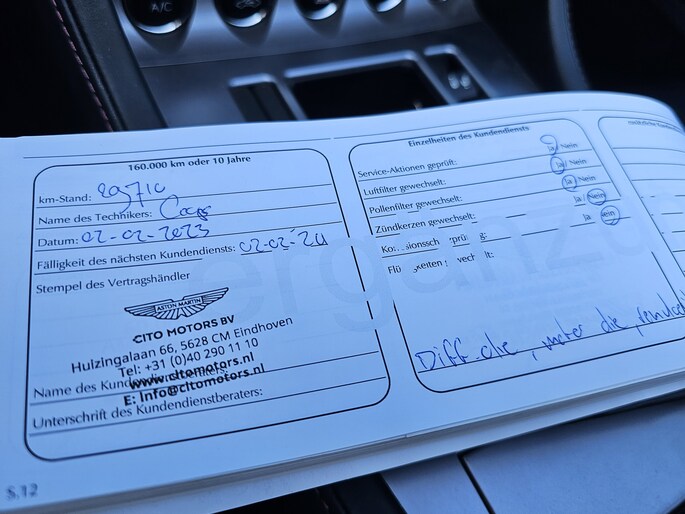 A/C
160.000 km oder 10 Jahre
km-Stand: 29710
Name des Technikers:
Datum: 02-02-2023
Fälligkeit des nächsten Kundendiensts: 02-02-'24
Stempel des Vertragshändler
ASTON MARTIN
CITO MOTORS BV
Hulzingalaan 66, 5628 CM Eindhoven
Tel: +31 (0)40 290 11 10
www.citomotors.nl
E: Info@citomotors.nl
Name des
Unterschrift des Kundendienstberaters:
S.12
Einzelheiten des Kundendiensts
Service-Aktionen geprüft: Ja Nein
Luftfilter gewechselt: Ja Nein
Pollenfilter gewechselt: Ja Nein
Zündkerzen gewechselt: Ja Nein
Ja Nein
Diff. olie, motor olie,